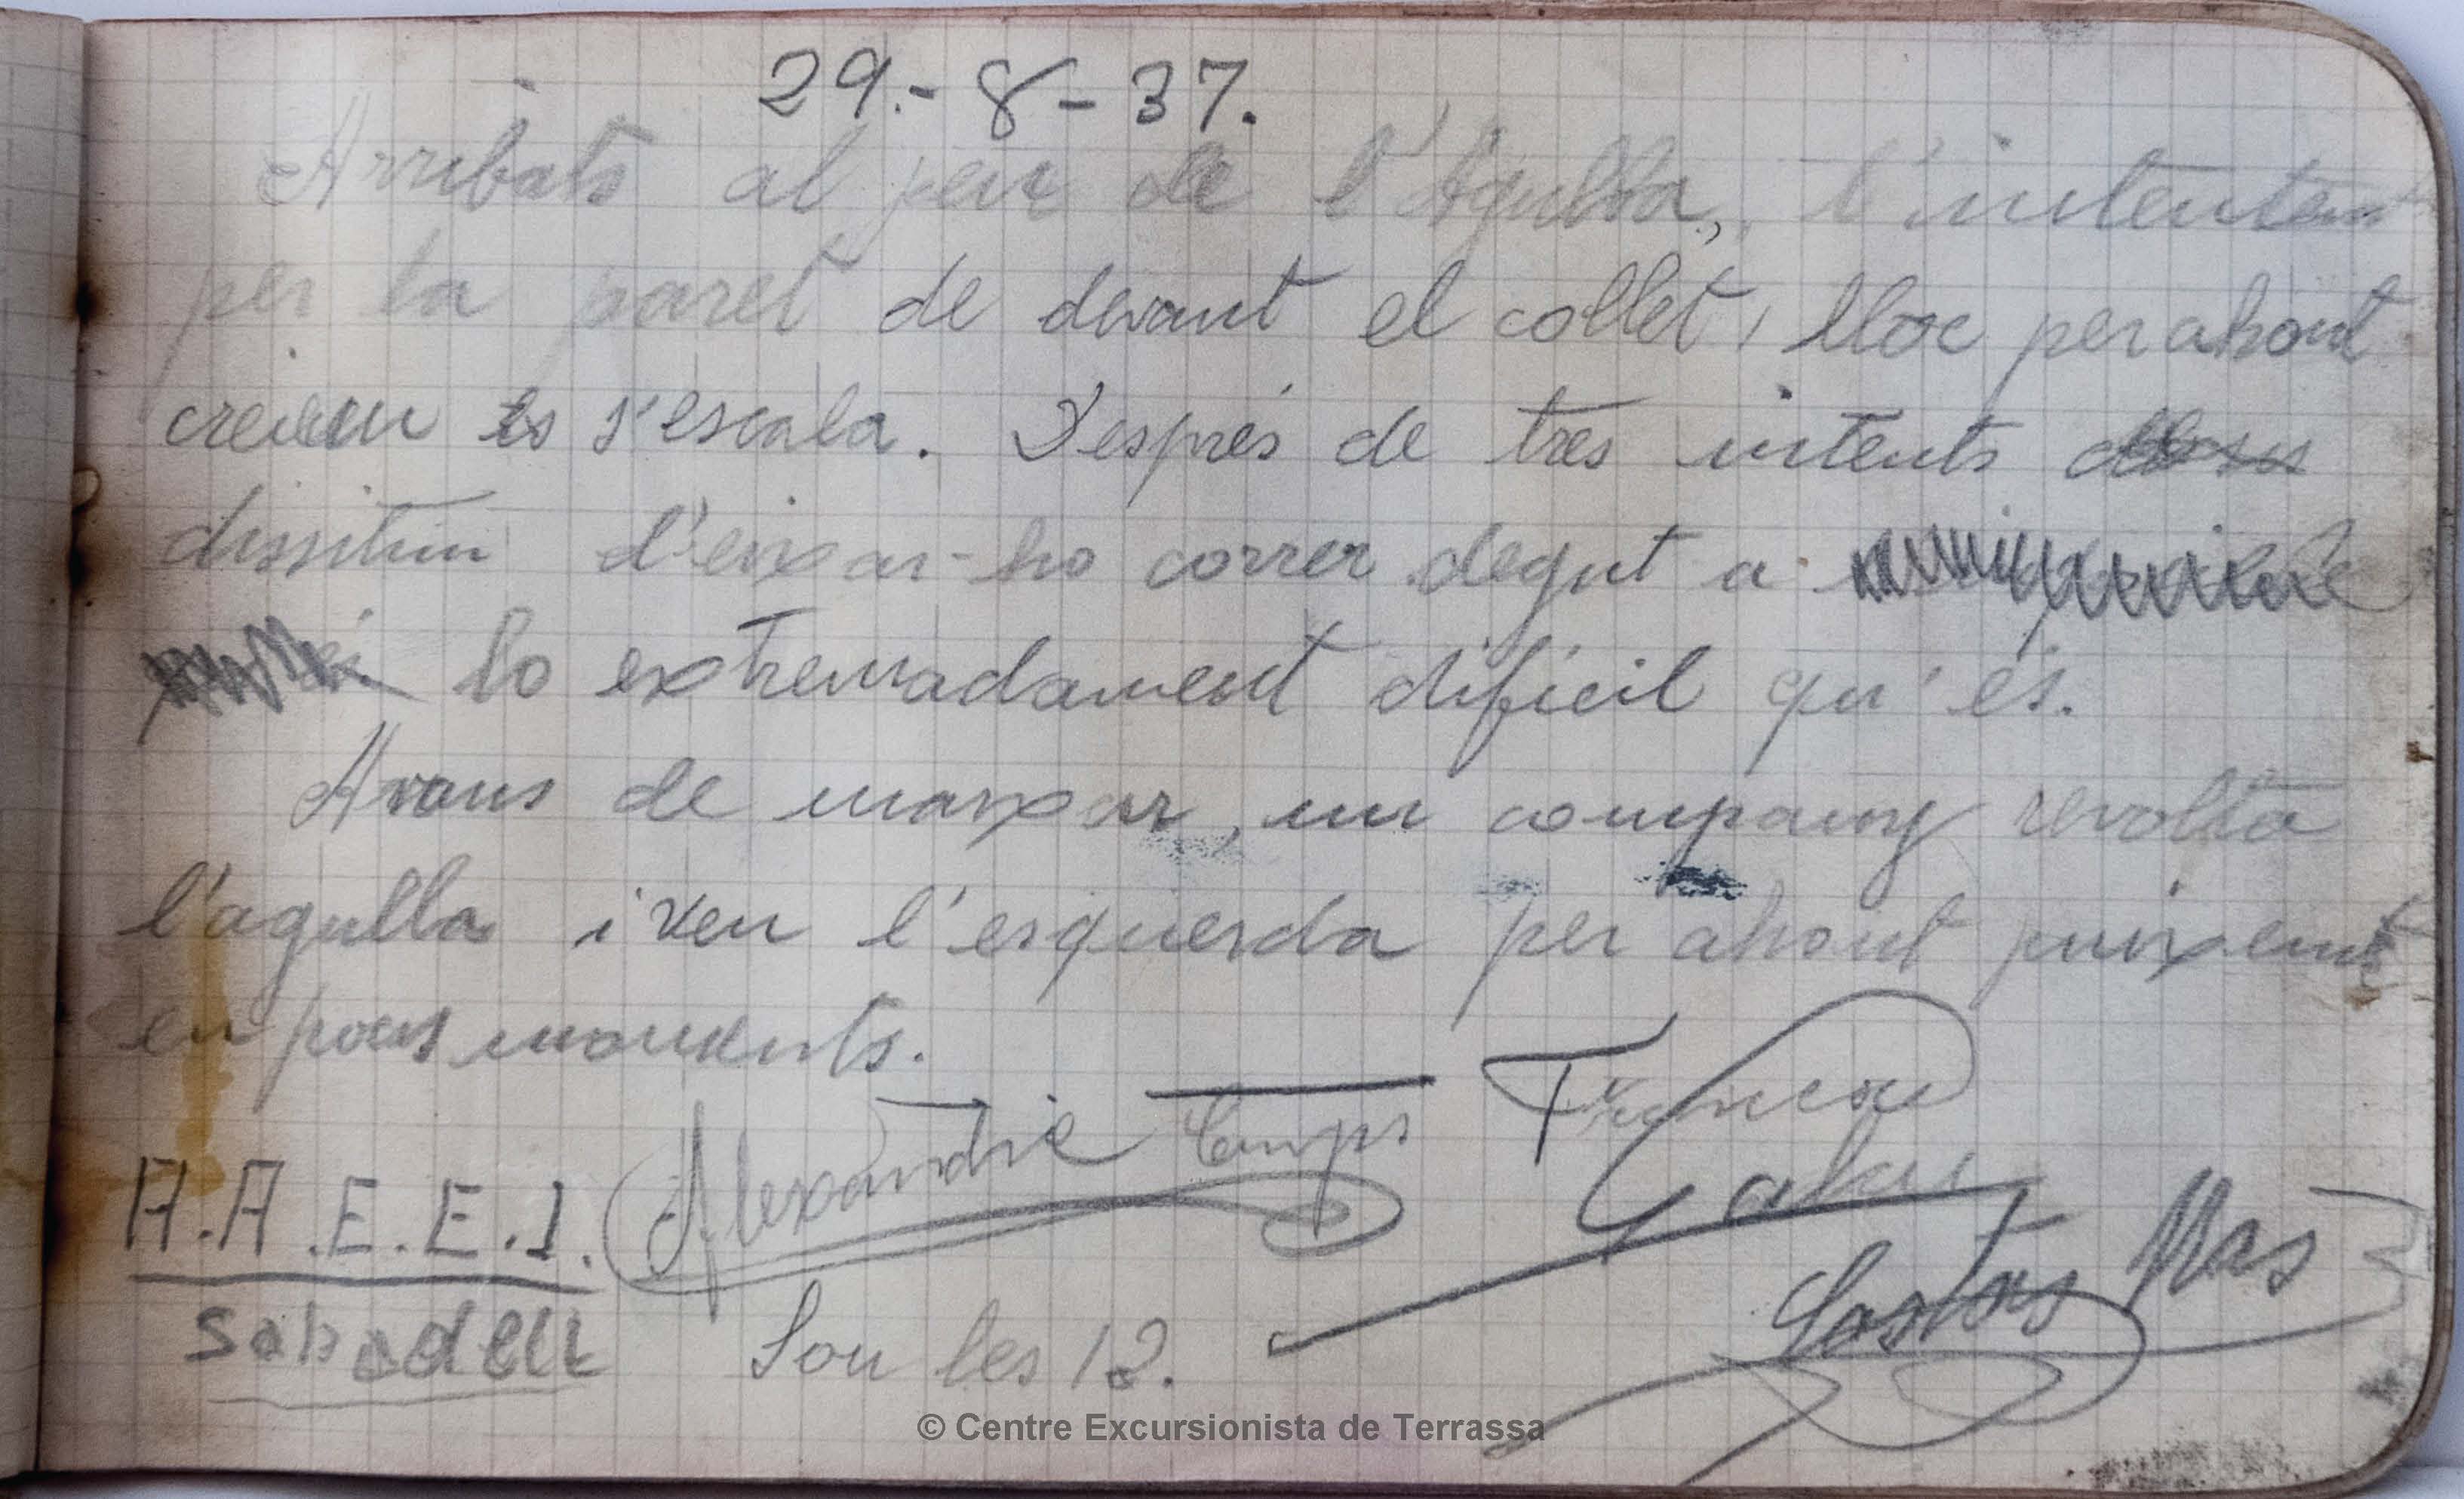 29.-8-37.
Arribats al peu de l'Agulla, l'intentem
per la paret de devant el collet, lloc per ahont
creiem s'escala. Després de tres intents
dissitim d'eixar-ho correr degut a
lo extremadament difícil qu'és.
Avans de marxar, un company revolta
l'agulla i veu l'esquerda per ahont puixem
en pocs moments.
A.A.E.E.I. Alexandre Camps Francesc
Mas
Sabadell Son les 12.
© Centre Excursionista de Terrassa